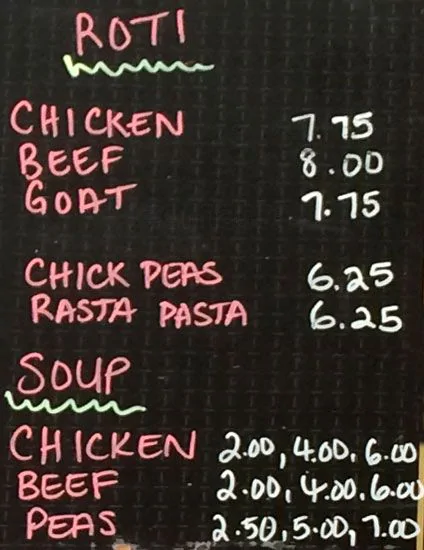 ROTI
CHICKEN 7.75
BEEF 8.00
GOAT 7.75
CHICK PEAS 6.25
RASTA PASTA 6.25
SOUP
CHICKEN 2.00, 4.00, 6.00
BEEF 2.00, 4.00, 6.00
PEAS 2.50, 5.00, 7.00